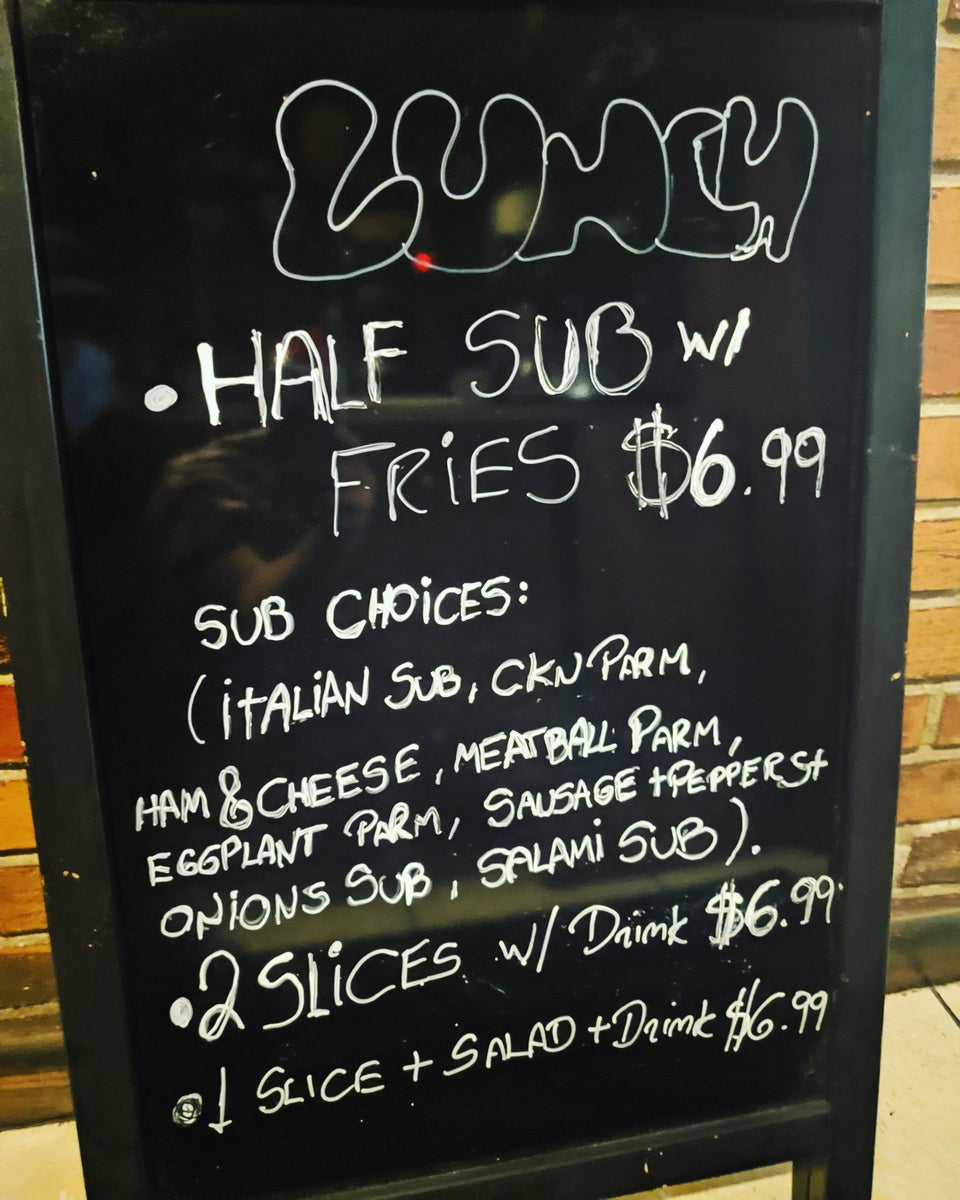 LUNCH
• HALF SUB w/
FRiES $6.99
SUB CHOiCES:
(iTALiAN SUB, CKN PARM,
HAM & CHEESE, MEATBALL PARM,
EGGPLANT PARM, SAUSAGE + PEPPERS +
ONiONS SUB, SALAMi SUB).
• 2 SLiCES w/ Drink $6.99
• 1 SLICE + SALAD + Drink $6.99